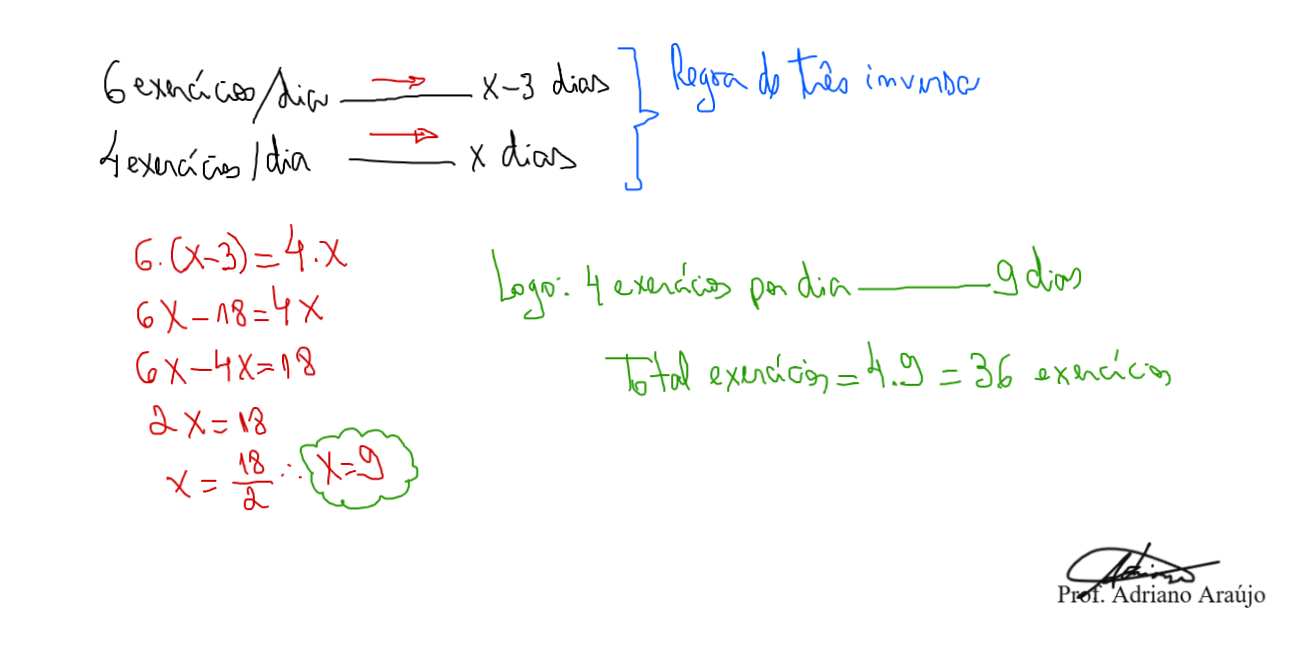 6 exercícios/dia — x-3 dias
4 exercícios/dia — x dias
Regra de três inversa
6.(x-3)=4.x
6x-18=4x
6x-4x=18
2x=18
x=18/2 ∴ x=9
Logo: 4 exercícios por dia — 9 dias
Total exercícios = 4.9 = 36 exercícios
Prof. Adriano Araújo